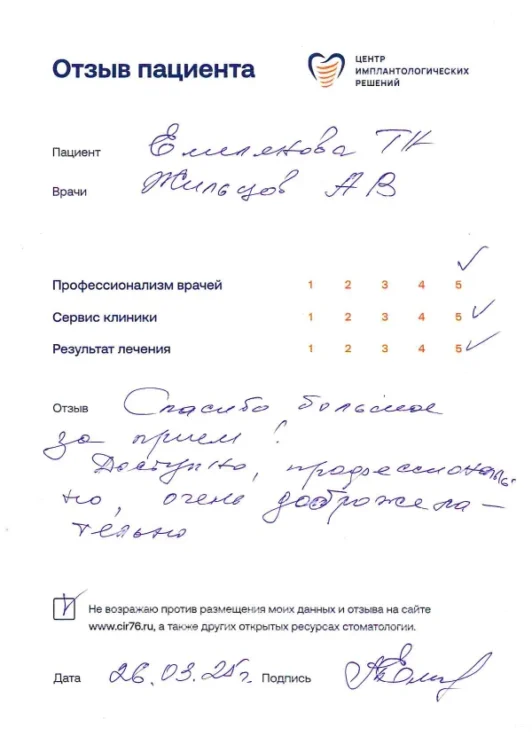 Отзыв пациента
ЦЕНТР
ИМПЛАНТОЛОГИЧЕСКИХ
РЕШЕНИЙ
Пациент Емелянова ТН
Врачи Жильцов АВ
Профессионализм врачей 1 2 3 4 5
Сервис клиники 1 2 3 4 5
Результат лечения 1 2 3 4 5
Отзыв Спасибо большое
за прием!
Доступно, профессиональ-
но, очень доброжела-
тельно
Не возражаю против размещения моих данных и отзыва на сайте
www.cir76.ru, а также других открытых ресурсах стоматологии.
Дата 26.03.25г. Подпись